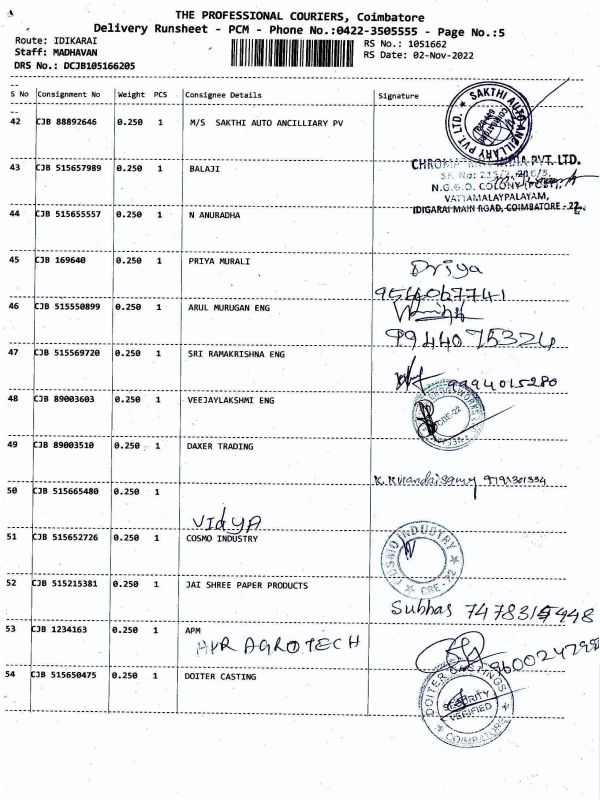 THE PROFESSIONAL COURIERS, Coimbatore
Delivery Runsheet - PCM - Phone No.:0422-3505555 - Page No.:5
Route: IDIKARAI
Staff: MADHAVAN
DRS No.: DCJB105166205
RS No.: 1051662
RS Date: 02-Nov-2022
S No Consignment No Weight PCS Consignee Details Signature
42 CJB 88892646 0.250 1 M/S SAKTHI AUTO ANCILLIARY PV
SAKTHI AUTO ANCILLARY PVT. LTD.
43 CJB 515657989 0.250 1 BALAJI
PVT. LTD.
N.G.G.O. COLONY (POST),
VATTAMALAYPALAYAM,
IDIGARAI MAIN ROAD, COIMBATORE - 22.
44 CJB 515655557 0.250 1 N ANURADHA
45 CJB 169640 0.250 1 PRIYA MURALI
Priya
9566067741
46 CJB 515550899 0.250 1 ARUL MURUGAN ENG
9944075324
47 CJB 515569720 0.250 1 SRI RAMAKRISHNA ENG
9994015280
48 CJB 89003603 0.250 1 VEEJAYLAKSHMI ENG
49 CJB 89003510 0.250 1 DAXER TRADING
50 CJB 515665480 0.250 1
VIdYA
51 CJB 515652726 0.250 1 COSMO INDUSTRY
COSMO INDUSTRY CBE - 22
52 CJB 515215381 0.250 1 JAI SHREE PAPER PRODUCTS
Subhas
53 CJB 1234163 0.250 1 APM
AGROTECH
54 CJB 515650475 0.250 1 DOITER CASTING
DOITER CASTINGS
SECURITY
VERIFIED
COIMBATORE